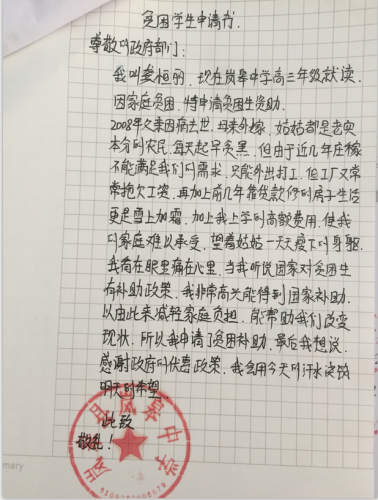 贫困学生申请书.
尊敬的政府部门:
我叫娄恒丽,现在岚皋中学高三年级就读.
因家庭贫困,特申请贫困生资助.
2008年父亲因病去世,母亲外嫁,姑姑都是老实
本分的农民,每天起早贪黑,但由于近几年庄稼
不能满足我们的需求,只能外出打工,但工厂又常
常拖欠工资,再加上前几年靠贷款修的房子生活
更是雪上加霜,加上我上学的高额费用,使我
的家庭难以承受,望着姑姑一天天瘦下的身躯,
我看在眼里痛在心里,当我听说国家对贫困生
有补助政策,我非常高兴能得到国家补助,
以由此来减轻家庭负担,能帮助我们改变
现状,所以我申请了贫困补助,最后我想说,
感谢政府的优惠政策,我会用今天的汗水浇筑
明天的希望.
此致
敬礼!
岚皋中学
mary